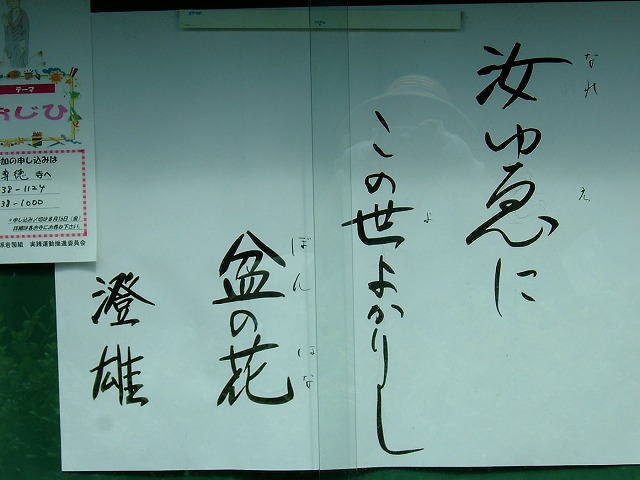 汝ゆゑに
なれ
え
この世よかりし
よ
盆の花
ぼん
ばな
澄雄
テーマ
おじひ
加の申し込みは
寺へ
38-1124
38-1000
※申し込み〆切は8月16日(金)
詳細は各お寺にお尋ね下さい。
派岩国組 実践運動推進委員会